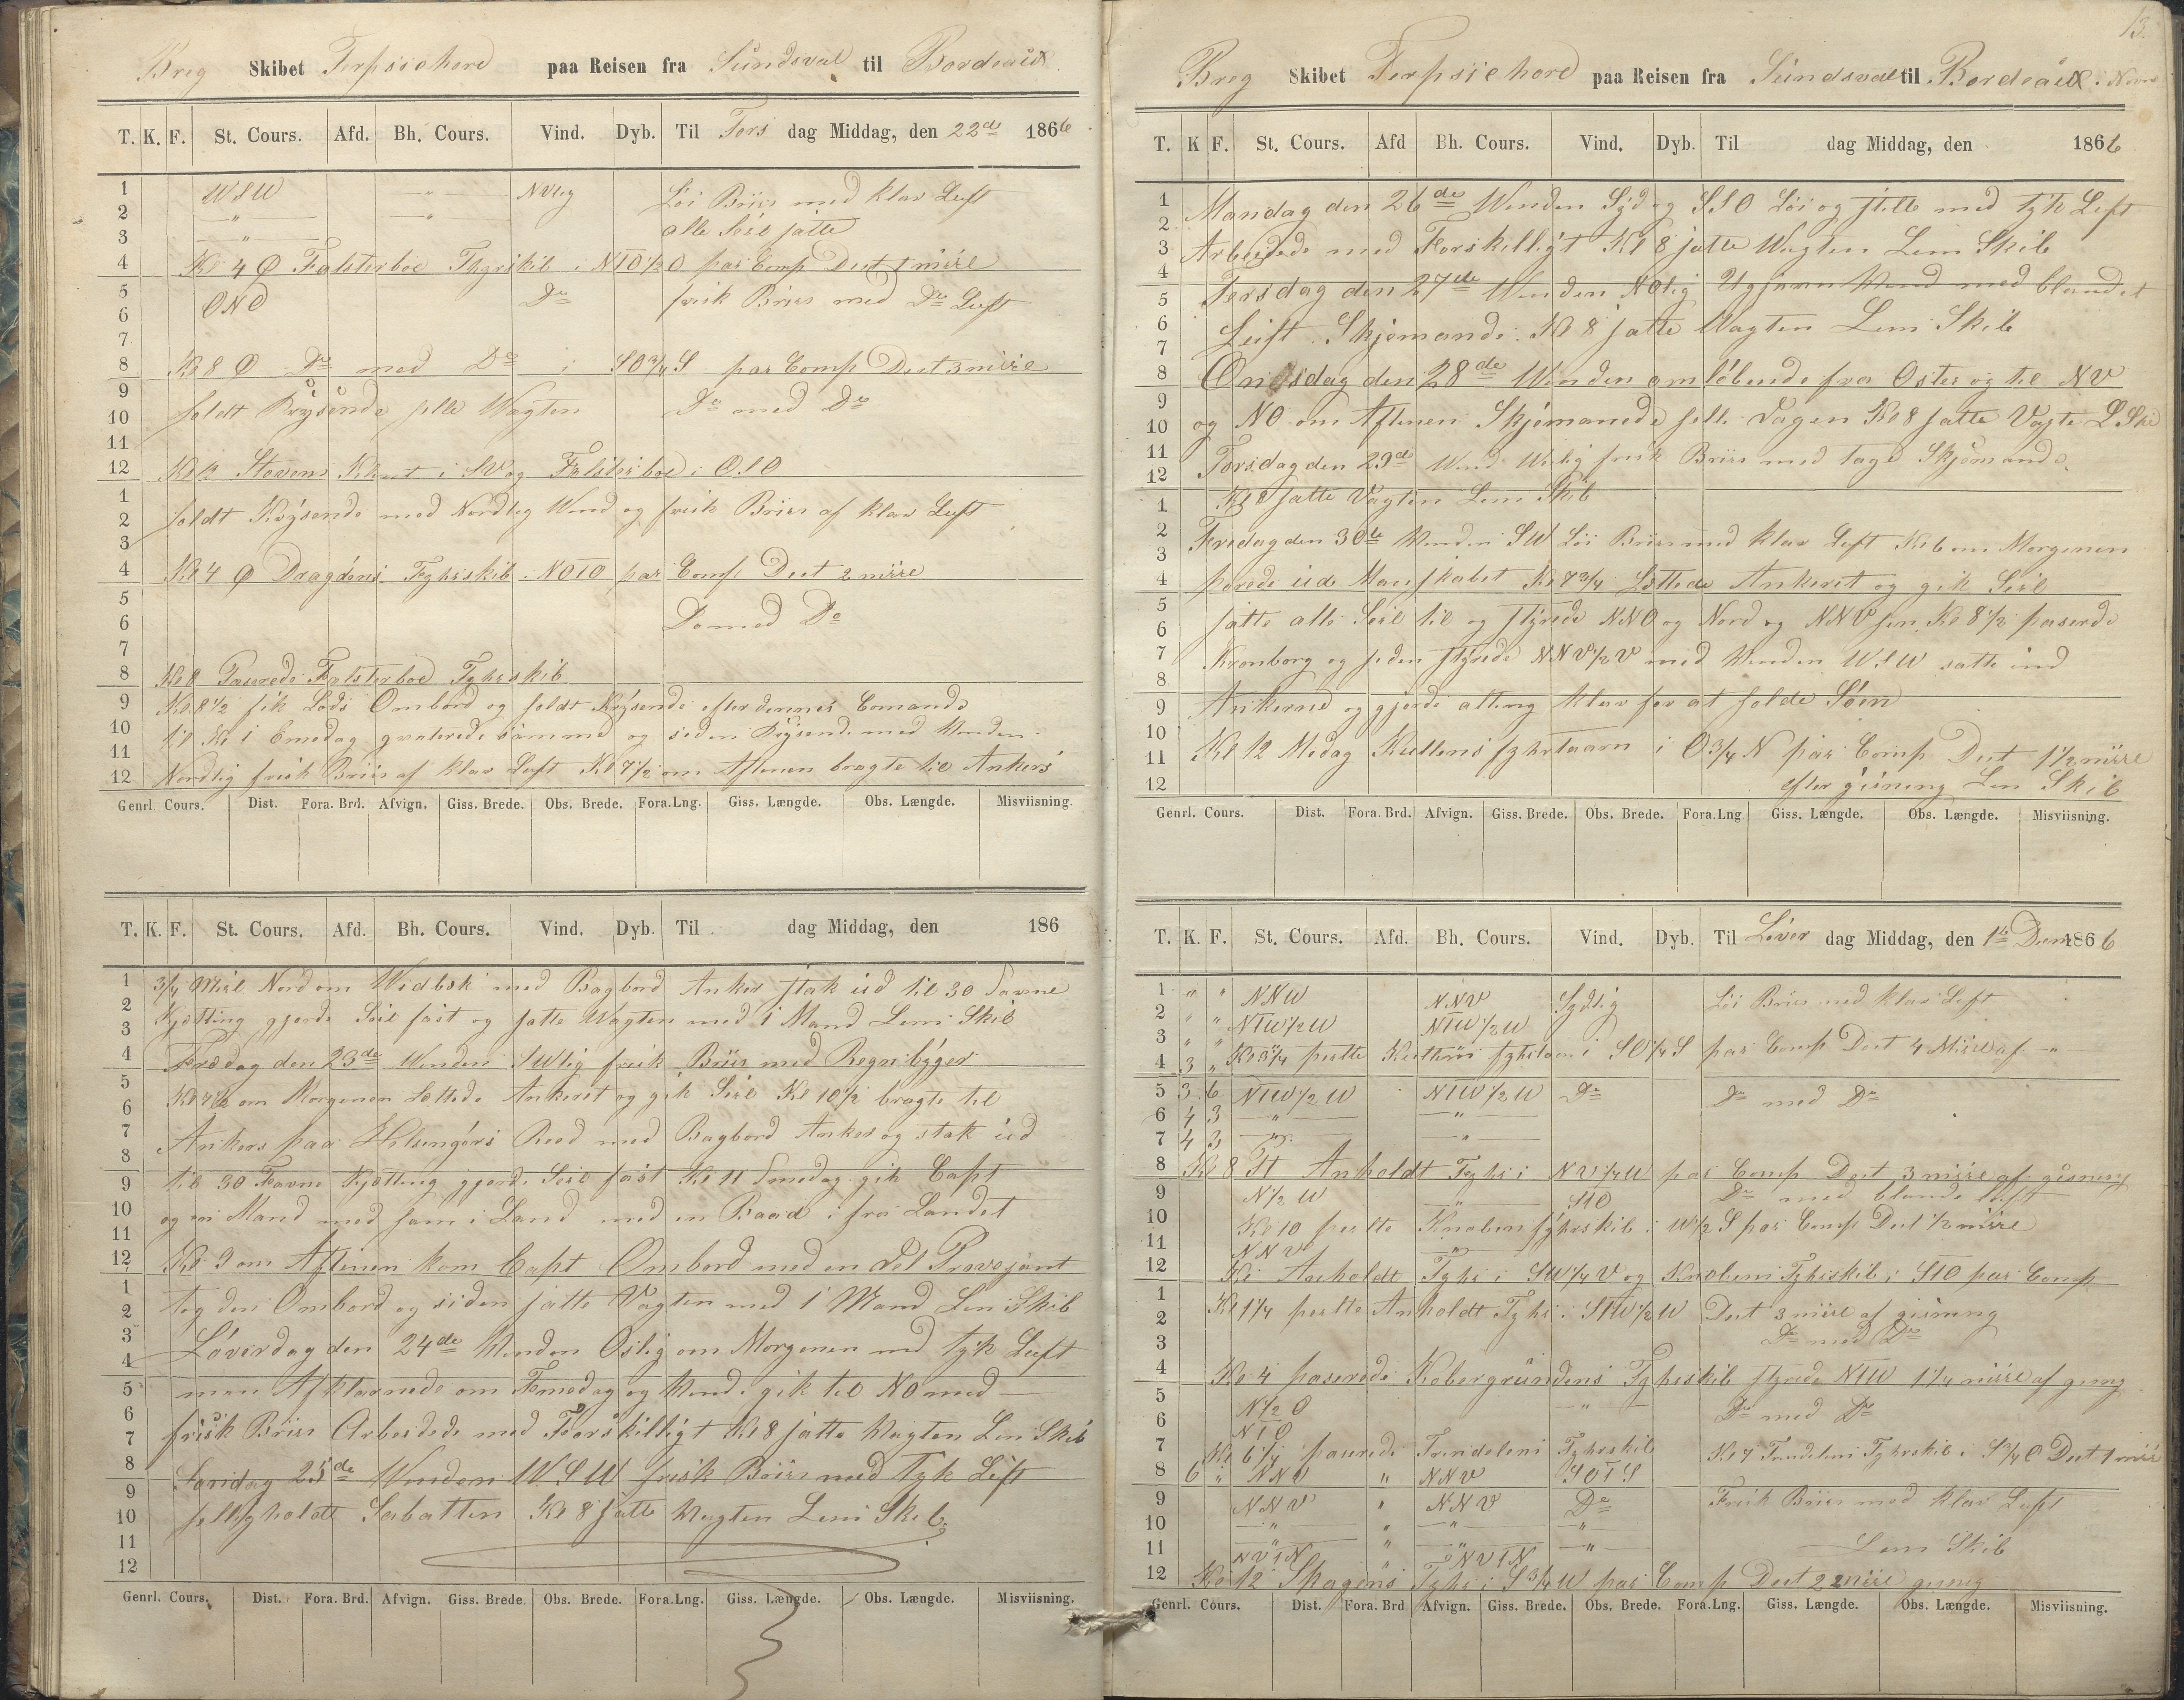 Breg Skibet Terpsichore paa Reisen fra Sundsval til Bordeaux
T. K. F. St. Cours. Afd. Bh. Cours. Vind. Dyb. Til Tors dag Middag, den 22de 1866
1 WSW " NVlig Löi Briis med klar Luft
2 " " alle Seil satte
3 "
4 Kl 4 Falsterboe Fyrskib i NTO½O par Comp Dist 1 miile
5 ONO Do frisk Briis med Do Luft
6
7
8 Kl 8 Do med Do i SO¾S par Comp Dist 3 miile
9 holdt Krysende hele Wagten Do med Do
10
11
12 Kl 12 Stevens Klint i SV og Falsterboe i OSO
1 holdt Krysende med Nordlig Wind og frisk Briis af klar Luft
2
3
4 Kl 4 Dragöens Fyhrskib NOTO par Comp Dist 2 miile
5 Do med Do
6
7
8 Kl 8 Paserede Falsterboe Fyhrskib
9 Kl 8½ fik Lods Ombord og holdt Krysende efter dennes Comando
10 til Kl 1 Emedag samme og siden Krysende med Winden
11 Nordlig frisk Briis af klar Luft Kl 7½ om Aftenen bragte til Ankers
12
Genrl. Cours. Dist. Fora. Brd. Afvign. Giss. Brede. Obs. Brede. Fora.Lng. Giss. Længde. Obs. Længde. Misviisning.
T. K. F. St. Cours. Afd. Bh. Cours. Vind. Dyb. Til dag Middag, den 186
1 3/4 Miil Nord om Widbek med Bagbord Anker stak ud til 30 Favne
2 Kjætting gjorde Seil fast og satte Wagten med 1 Mand Lens Skib
3
4 Fredag den 23de Winden SWlig frisk Briis med Regnbyger
5 Kl 7½ om Morgenen Lettede Ankeret og gik Seil Kl 10½ bragte til
6
7 Ankers paa Helsingörs Reed med Bagbord Anker og stak ud
8
9 til 30 Favne Kjætting gjorde Seil fast Kl 11 Fmedag gik Capt
10 og en Mand med ham i Land med en Baad i fra Landet
11
12 Kl 9 om Aftenen kom Capt Ombord med en Del Provejant
1 tog den Ombord og siden satte Vagten med 1 Mand Len Skib
2
3 Löverdag den 24de Winden Oslig om Morgenen med tyk Luft
4
5 men Afklarnede om Femedag og Wind gik til NO med
6
7 frisk Briis Arbeidede med Forskilligt Kl 8 satte Wagten Len Skib
8 Söndag 25de Winden WSW frisk Briis med Tyk Luft
9
10 helligholdt Sabatten Kl 8 satte Wagten Lens Skib
11
12
Genrl. Cours. Dist. Fora. Brd. Afvign. Giss. Brede. Obs. Brede. Fora.Lng. Giss. Længde. Obs. Længde. Misviisning.
13.
Breg Skibet Terpsichore paa Reisen fra Sundsval til Bordeaux.
T. K F. St. Cours. Afd Bh. Cours. Vind. Dyb. Til dag Middag, den 1866
1 Mandag den 26de Winden Syd og SSO Löi og stille med tyk Luft
2
3 Arbeidede med Forskilligt Kl 8 satte Wagten Lens Skib
4
5 Tersdag den 27de Winden NOlig Ujævn Wind med blandet
6
7 Luft Skjemande Kl 8 satte Wagten Lens Skib
8 Onsdag den 28de Winden omlöbende fra Oster og til NV
9
10 og NO om Aftenen Skjemanede hele Dagen Kl 8 satte Vagte L Skib
11 Torsdag den 29de Wind Weslig frisk Briis med tage Skjemande
12
1 Kl 8 satte Vagten Lens Skib
2 Fredag den 30te Winden SW Löi Briis med klar Luft Kl 6 om Morgenen
3
4 purede ud Manskabet Kl 7¾ Lettede Ankeret og gik Seil
5
6 satte alle Seil til og styrede NNO og Nord og NNV hen Kl 8½ paserede
7 Kronborg og siden styrede NNV½V med Winden WSW satte ind
8
9 Ankerne og gjorde alting klar for at holde Söen
10
11 Kl 12 Medag Kullens fyhrtaarn i O¾N par Comp Dist 1½ miile
12 efter gisning Len Skib
Genrl. Cours. Dist. Fora. Brd. Afvign. Giss. Brede. Obs. Brede. Fora.Lng Giss. Længde. Obs. Længde. Misviisning.
T. K. F. St. Cours. Afd. Bh. Cours. Vind. Dyb. Til Löver dag Middag, den 1te Decm 1866
1 " " NNW NNV Sydlig Löi Briis med klar Luft
2 " " NTW½W NTW½W
3 " "
4 3 " Kl 3¼ peilte Kullens fyhrtaarn i SO¼S par Comp Dist 4 Miile af
5 3 6 NTW½W NTW½W Do Do med Do
6 4 3 " "
7 4 3 " "
8 Kl 8 Anholdt Fyhr i NV¼W par Comp Dist 3 miile af gisning
9 N½W " STO Do med blande luft
10 Kl 10 peilte Knoben fyhrskib i W½S par Comp Dist ½ miile
11 NNV "
12 Kl Anholdt Fyhr i SW¼V og Knobens Fyhrskib i STO par Comp
1 Kl 1¼ peilte Anholdt Fyhr i STW½W Dist 3 miile af gisning
2 Do med Do
3
4 Kl 4 paserede Kobergrundens Fyhrskib styrede NTW 1¼ miile af
5 N½O " Do med Do
6 NTO
7 Kl 6¼ paserede Trindelens Fyhrskib Kl 7 Trindelens Fyhrskib i S¾O Dist 1 miil
8 6 " NNV " NNV SOTS
9 NNV " NNV Do Frisk Briis med klar Luft
10 " " " "
11 " " " " Lens Skib
NVTN " NVTN
12 Kl 12 Skagens Fyhr i S¾W par Comp Dist 2 miile
Genrl. Cours. Dist. Fora. Brd. Afvign. Giss. Brede. Obs. Brede. Fora.Lng. Giss. Længde. Obs. Længde. Misviisning.